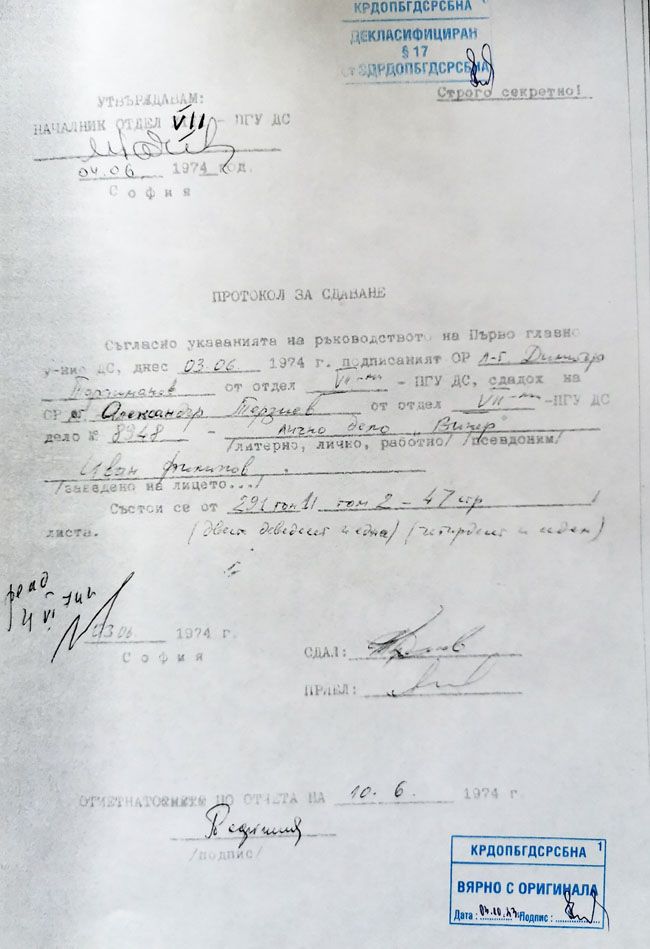 КРДОПБГДСРСБНА 1
ДЕКЛАСИФИЦИРАН
§ 17
от ЗДРДОПБГДСРСБНА
Строго секретно!
УТВЪРЖДАВАМ:
НАЧАЛНИК ОТДЕЛ VII - ПГУ ДС
04.06 1974 год.
София
ПРОТОКОЛ ЗА СДАВАНЕ
Съгласно указванията на ръководството на Първо главно
у-ние ДС, днес 03.06 1974 г. подписаният ОР Димитър
от отдел VII-ми - ПГУ ДС, сдадох на
ОР Александър Терзиев от отдел VII-ми -ПГУ ДС
дело № 8948 - лично дело "Винер"
/литерно, лично, работно/ /псевдоним/
Иван Филипов.
/заведено на лицето.../
Състои се от 291 том 1 том 2 - 41 стр /
листа. (двеста деведесет и една) (четиридесет и един)
03.06. 1974 г.
София
СДАЛ:
ПРИЕЛ:
ПО ОТЧЕТА НА 10.6. 1974 г.
/подпис/
КРДОПБГДСРСБНА 1
ВЯРНО С ОРИГИНАЛА
Дата: Подпис: